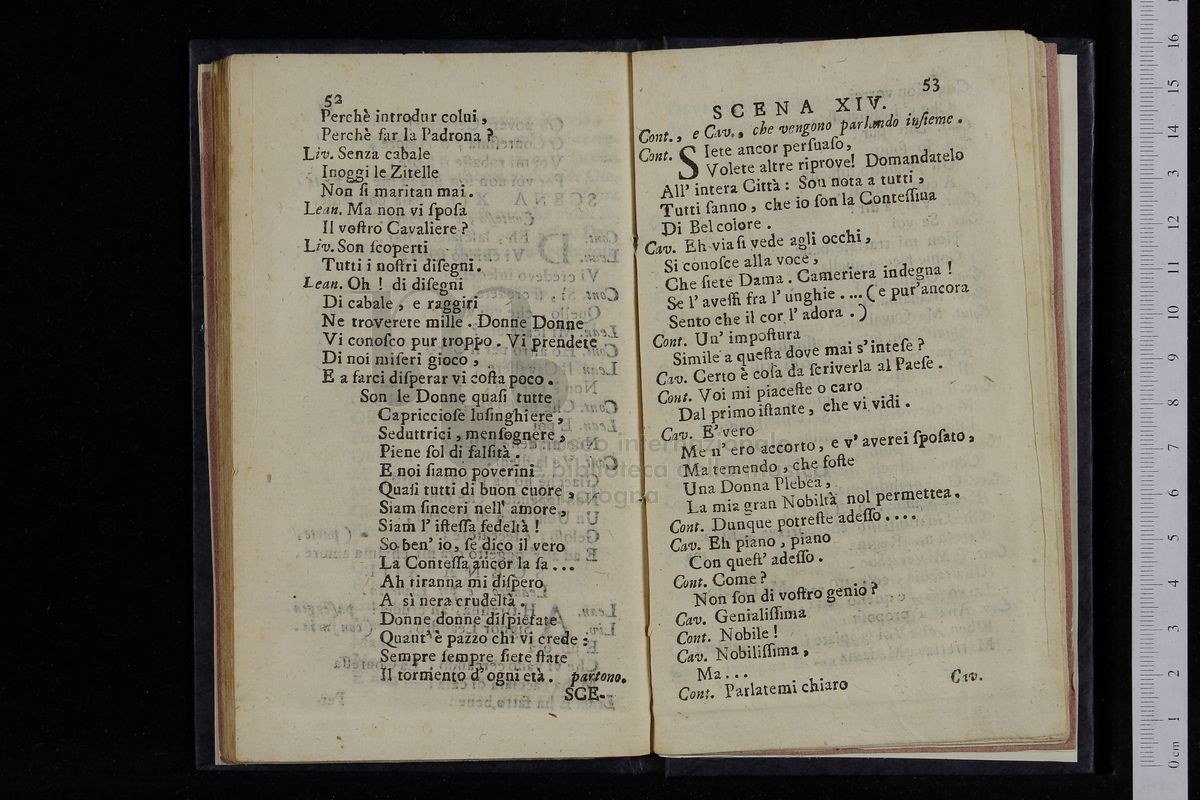 52
Perchè introdur colui,
Perchè far la Padrona?
Liv. Senza cabale
Inoggi le Zitelle
Non ſi maritan mai.
Lean. Ma non vi ſpoſa
Il voſtro Cavaliere?
Liv. Son ſcoperti
Tutti i noſtri diſegni.
Lean. Oh! di diſegni
Di cabale, e raggiri
Ne troverete mille. Donne Donne
Vi conoſco pur troppo. Vi prendete
Di noi miſeri gioco,
E a farci diſperar vi coſta poco.
Son le Donne quaſi tutte
Capriccioſe luſinghiere,
Seduttrici, menſognere,
Piene ſol di falſità.
E noi ſiamo poverini
Quaſi tutti di buon cuore,
Siam ſinceri nell' amore,
Siam l' iſteſſa fedeltà!
So ben' io, ſe dico il vero
La Conteſſa ancor la ſa...
Ah tiranna mi diſpero
A sì nera crudeltà.
Donne donne diſpietate
Quant' è pazzo chi vi crede:
Sempre ſempre ſiete ſtate
Il tormento d' ogni età. partono.
SCE-
53
SCENA XIV.
Cont., e Cav., che vengono parlando inſieme.
Cont. Siete ancor perſuaſo,
Volete altre riprove! Domandatelo
All' intera Città: Son nota a tutti,
Tutti ſanno, che io ſon la Conteſſina
Di Bel colore.
Cav. Eh via ſi vede agli occhi,
Si conoſce alla voce,
Che ſiete Dama. Cameriera indegna!
Se l' aveſſi fra l' unghie.... (e pur'ancora
Sento che il cor l' adora.)
Cont. Un' impoſtura
Simile a queſta dove mai s' inteſe?
Cav. Certo è coſa da ſcriverla al Paeſe.
Cont. Voi mi piaceſte o caro
Dal primo iſtante, che vi vidi.
Cav. E' vero
Me n' ero accorto, e v' averei ſpoſato,
Ma temendo, che foſte
Una Donna Plebea,
La mia gran Nobiltà nol permettea.
Cont. Dunque potreſte adeſſo....
Cav. Eh piano, piano
Con queſt' adeſſo.
Cont. Come?
Non ſon di voſtro genio?
Cav. Genialiſſima
Cont. Nobile!
Cav. Nobiliſſima,
Ma...
Cont. Parlatemi chiaro
Cav.